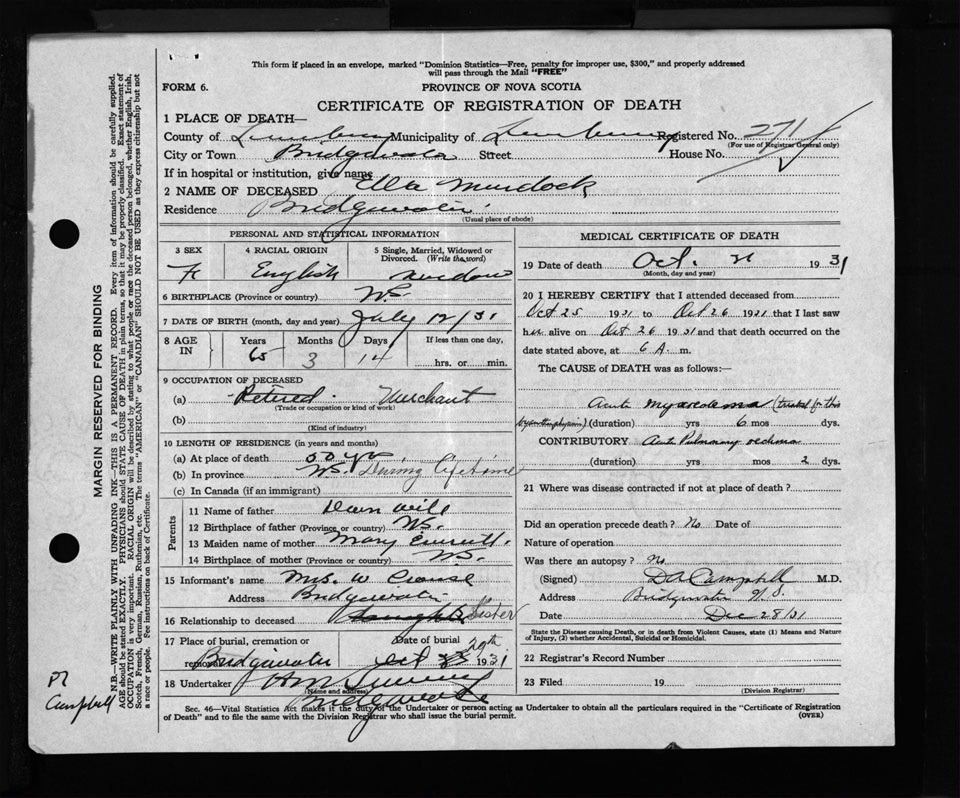 This form if placed in an envelope, marked "Dominion Statistics—Free, penalty for improper use, $300," and properly addressed
will pass through the Mail "FREE"
FORM 6. PROVINCE OF NOVA SCOTIA
CERTIFICATE OF REGISTRATION OF DEATH
1 PLACE OF DEATH—
County of Lunenburg Municipality of Lunenburg Registered No. 271
(For use of Registrar General only)
City or Town Bridgewater Street House No.
If in hospital or institution, give name
2 NAME OF DECEASED Ella Murdock
Residence Bridgewater
(Usual place of abode)
PERSONAL AND STATISTICAL INFORMATION
3 SEX 4 RACIAL ORIGIN 5 Single, Married, Widowed or
Divorced. (Write the word)
English Widow
6 BIRTHPLACE (Province or country) N.S.
7 DATE OF BIRTH (month, day and year) July 12/31
8 AGE IN Years Months Days If less than one day,
65 3 14 hrs. or min.
9 OCCUPATION OF DECEASED
(a) Retired Merchant
(Trade or occupation or kind of work)
(b)
(Kind of industry)
10 LENGTH OF RESIDENCE (in years and months)
(a) At place of death yrs
(b) In province N.S. During Lifetime
(c) In Canada (if an immigrant)
Parents
11 Name of father Will
12 Birthplace of father (Province or country) N.S.
13 Maiden name of mother Mary
14 Birthplace of mother (Province or country) N.S.
15 Informant's name Mrs. W Crouse
Address Bridgewater
16 Relationship to deceased Daughter Sister
17 Place of burial, cremation or Date of burial
removal Bridgewater Oct 29th 1931
18 Undertaker
(Name and address)
Bridgewater
MEDICAL CERTIFICATE OF DEATH
19 Date of death Oct. 1931
(Month, day and year)
20 I HEREBY CERTIFY that I attended deceased from
Oct 25 1931 to Oct 26 1931 that I last saw
her alive on Oct 26 1931 and that death occurred on the
date stated above, at 6 A. m.
The CAUSE of DEATH was as follows:—
Acute Myxoedema (treated for this
by another physician) (duration) yrs 6 mos dys.
CONTRIBUTORY Acute Pulmonary oedema
(duration) yrs mos 2 dys.
21 Where was disease contracted if not at place of death?
Did an operation precede death? No Date of
Nature of operation
Was there an autopsy? No
(Signed) D A Campbell M.D.
Address Bridgewater N.S.
Date Dec 28/31
State the Disease causing Death, or in death from Violent Causes, state (1) Means and Nature
of Injury, (2) whether Accidental, Suicidal or Homicidal.
22 Registrar's Record Number
23 Filed 19
(Division Registrar)
Sec. 46—Vital Statistics Act makes it the duty of the Undertaker or person acting as Undertaker to obtain all the particulars required in the "Certificate of Registration
of Death" and to file the same with the Division Registrar who shall issue the burial permit.
(OVER)
MARGIN RESERVED FOR BINDING
N.B.—WRITE PLAINLY WITH UNFADING INK—THIS IS A PERMANENT RECORD. Every item of information should be carefully supplied.
AGE should be stated EXACTLY. PHYSICIANS should STATE CAUSE OF DEATH in plain terms, so that it may be properly classified. Exact statement of
OCCUPATION is very important. RACIAL ORIGIN will be described by stating to what people or race the deceased person belonged, whether English, Irish,
Scotch, French, German, Russian, Ruthenian, etc. The terms "AMERICAN" or "CANADIAN" SHOULD NOT BE USED as they express citizenship but not
a race or people. See instructions on back of Certificate.
Campbell